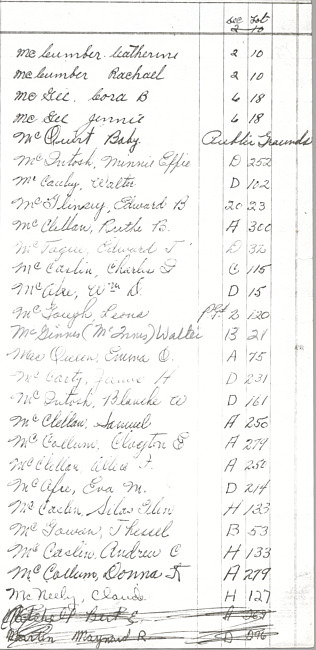 Sec Lot
2 10
McCumber Catherine 2 10
McCumber Rachael 2 10
McGee, Cora B 6 18
McGee Jennie 6 18
McQuirt Baby Public Grounds
McIntosh, Minnie Effie D 252
McCauley, Walter D 102
Edward B 20 23
McClellan, Ruthe B. A 300
McTague, Edward T D 32
McCaslin, Charles F C 115
McAfee, Wm D. D 15
McGough, Leona 2 120
McGinnes (McInnes) Walter B 21
MacQueen, Emma O. A 75
McCarty, Jamie H D 231
McIntosh, Blanche W D 161
McClellan, Samuel A 250
McCollum, Clayton E A 279
McClellan, Allen F. A 250
McAfee, Eva M. D 214
McCaslin, Silas Eden H 133
McGowan, Thessel B 53
McCaslin, Andrew C H 133
McCollum, Donna K A 279
McNeely, Claude H 127
Mitchell Bert E. A
Martin Maynard R D 296